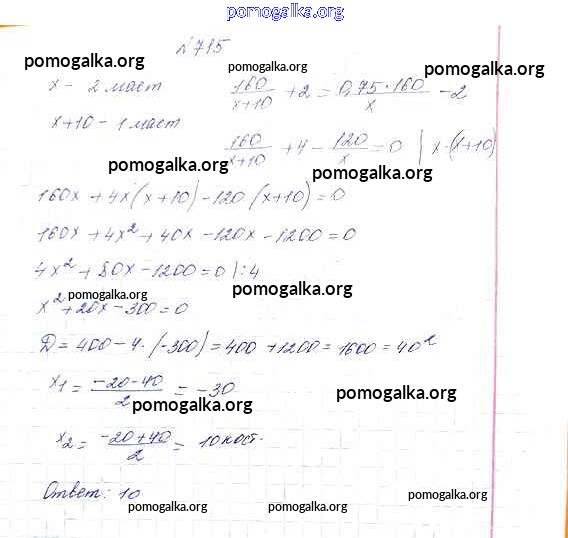 pomogalka.org
№715
pomogalka.org pomogalka.org pomogalka.org
x - 2 маст 160/(x+10) + 2 = 0,75·160/x - 2
x+10 - 1 маст
160/(x+10) + 4 - 120/x = 0 | x·(x+10)
pomogalka.org pomogalka.org
160x + 4x(x+10) - 120(x+10) = 0
160x + 4x² + 40x - 120x - 1200 = 0
4x² + 80x - 1200 = 0 |:4
pomogalka.org pomogalka.org
x² + 20x - 300 = 0
D = 400 - 4·(-300) = 400 + 1200 = 1600 = 40²
x₁ = (-20-40)/2 = -30
pomogalka.org pomogalka.org
x₂ = (-20+40)/2 = 10 кост.
Ответ: 10
pomogalka.org pomogalka.org pomogalka.org